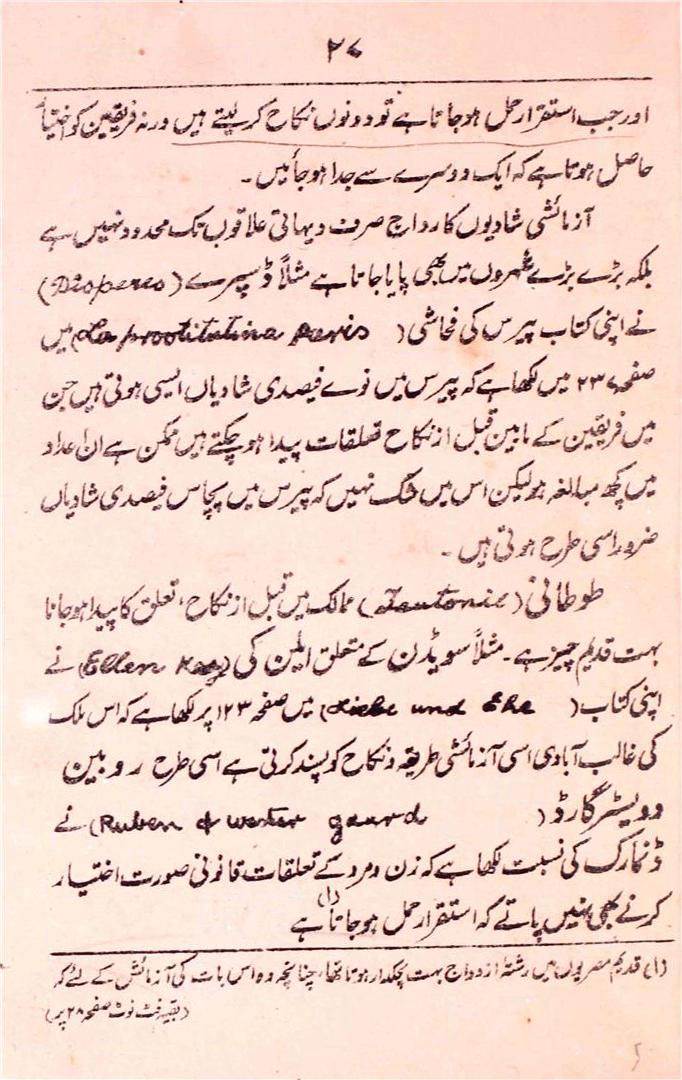 ۲۷
اور جب استقرار حمل ہو جاتا ہے تو دونوں نکاح کر لیتے ہیں ورنہ فریقین کو اختیار
حاصل ہوتا ہے کہ ایک دوسرے سے جدا ہو جائیں۔
آزمائشی شادیوں کا رواج صرف دیہاتی علاقوں تک محدود نہیں ہے
بلکہ بڑے بڑے شہروں میں بھی پایا جاتا ہے مثلاً ڈسپرے (Dioperes)
نے اپنی کتاب پیرس کی فحاشی (La prootitutina paris) میں
صفحہ ۲۳۷ میں لکھا ہے کہ پیرس میں نوے فیصدی شادیاں ایسی ہوتی ہیں جن
میں فریقین کے مابین قبل از نکاح تعلقات پیدا ہو چکتے ہیں ممکن ہے ان اعداد
میں کچھ مبالغہ ہو لیکن اس میں شک نہیں کہ پیرس میں پچاس فیصدی شادیاں
ضرور اسی طرح ہوتی ہیں۔
طوطانی (Teutonic) ممالک میں قبل از نکاح، تعلق کا پیدا ہو جانا
بہت قدیم چیز ہے۔ مثلاً سویڈن کے متعلق ایلن کی (Ellen Key) نے
اپنی کتاب (Liebe und Ehe) میں صفحہ ۱۲۳ پر لکھا ہے کہ اس ملک
کی غالب آبادی اسی آزمائشی طریقہ نکاح کو پسند کرتی ہے اسی طرح روبین
وویسٹر گارڈ (Ruben & wester gaard) نے
ڈنمارک کی نسبت لکھا ہے کہ زن و مرد کے تعلقات قانونی صورت اختیار
کرنے بھی نہیں پاتے کہ استقرار حمل ہو جاتا ہے (۱)
(۱) قدیم مصریوں میں رشتۂ ازدواج بہت لچکدار ہوتا تھا، چنانچہ وہ اس بات کی آزمائش کے لئے کہ
(بقیہ فٹ نوٹ صفحہ ۲۸ پر)